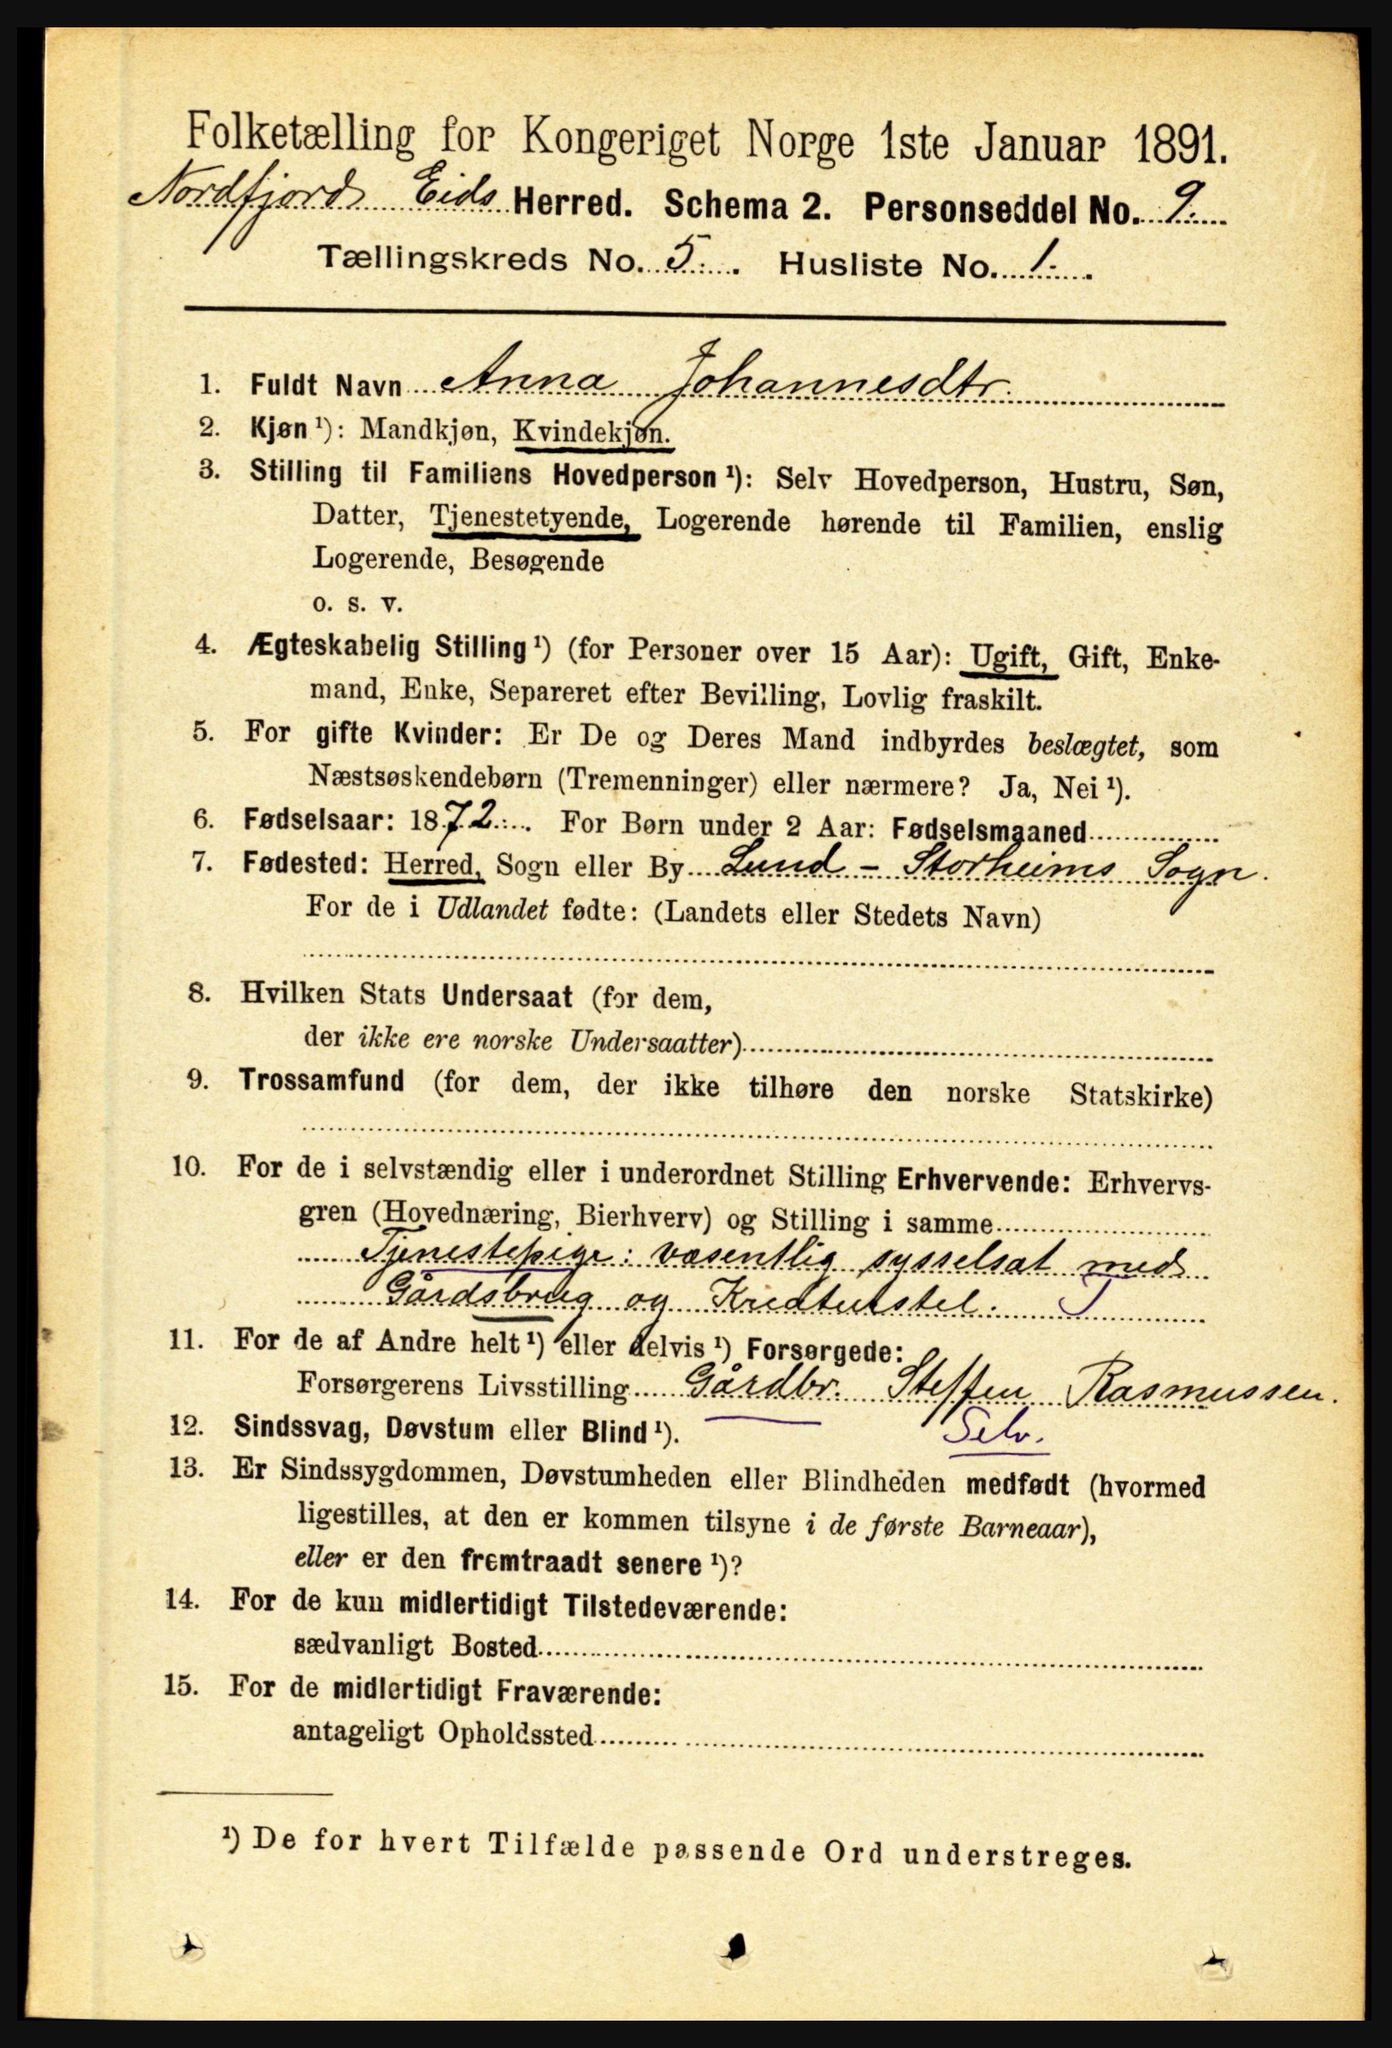 Folketælling for Kongeriget Norge 1ste Januar 1891.
Nordfjord Eids Herred. Schema 2. Personseddel No. 9.
Tællingskreds No. 5. Husliste No. 1.
1. Fuldt Navn Anna Johannesdtr.
2. Kjøn ¹): Mandkjøn, Kvindekjøn.
3. Stilling til Familiens Hovedperson ¹): Selv Hovedperson, Hustru, Søn,
Datter, Tjenestetyende, Logerende hørende til Familien, enslig
Logerende, Besøgende
o. s. v.
4. Ægteskabelig Stilling ¹) (for Personer over 15 Aar): Ugift, Gift, Enke-
mand, Enke, Separeret efter Bevilling, Lovlig fraskilt.
5. For gifte Kvinder: Er De og Deres Mand indbyrdes beslægtet, som
Næstsøskendebørn (Tremenninger) eller nærmere? Ja, Nei ¹).
6. Fødselsaar: 1872. For Børn under 2 Aar: Fødselsmaaned
7. Fødested: Herred, Sogn eller By Lund - Storheims Sogn.
For de i Udlandet fødte: (Landets eller Stedets Navn)
8. Hvilken Stats Undersaat (for dem,
der ikke ere norske Undersaatter)
9. Trossamfund (for dem, der ikke tilhøre den norske Statskirke)
10. For de i selvstændig eller i underordnet Stilling Erhvervende: Erhvervs-
gren (Hovednæring, Bierhverv) og Stilling i samme
Tjenestepige: væsentlig sysselsat med
Gårdsbrug og Kreaturstel. T
11. For de af Andre helt ¹) eller delvis ¹) Forsørgede:
Forsørgerens Livsstilling Gårdbr. Steffen Rasmussen.
12. Sindssvag, Døvstum eller Blind ¹). Selv.
13. Er Sindssygdommen, Døvstumheden eller Blindheden medfødt (hvormed
ligestilles, at den er kommen tilsyne i de første Barneaar),
eller er den fremtraadt senere ¹)?
14. For de kun midlertidigt Tilstedeværende:
sædvanligt Bosted
15. For de midlertidigt Fraværende:
antageligt Opholdssted
¹) De for hvert Tilfælde passende Ord understreges.